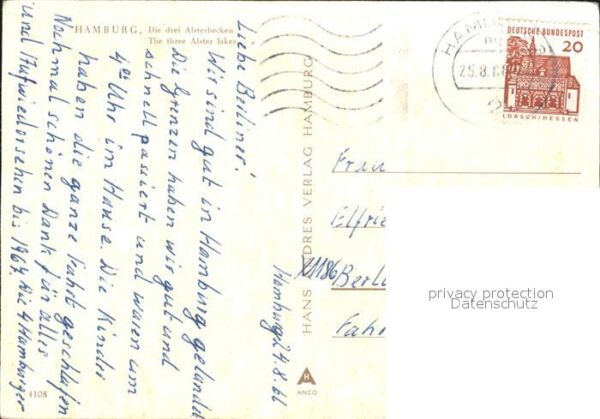 HAMBURG, Die drei Alsterbecken
The three Alster lakes
Liebe Berliner!
Wir sind gut in Hamburg gelandet
Die Grenzen haben wir gut und
schnell passiert und waren um
4 00 Uhr im Hause. Die Kinder
haben die ganze Fahrt geschlafen
Nochmal schönen Dank für alles
und Aufwiedersehen bis 1967. Die 4 Hamburger
4108
Hamburg 24.8.66
HANS ANDRES VERLAG HAMBURG
ANCO
HAMBURG
25.8.66
DEUTSCHE BUNDESPOST
20
LORSCH/HESSEN
Frau
Elfrie
Berli
Fah
privacy protection
Datenschutz